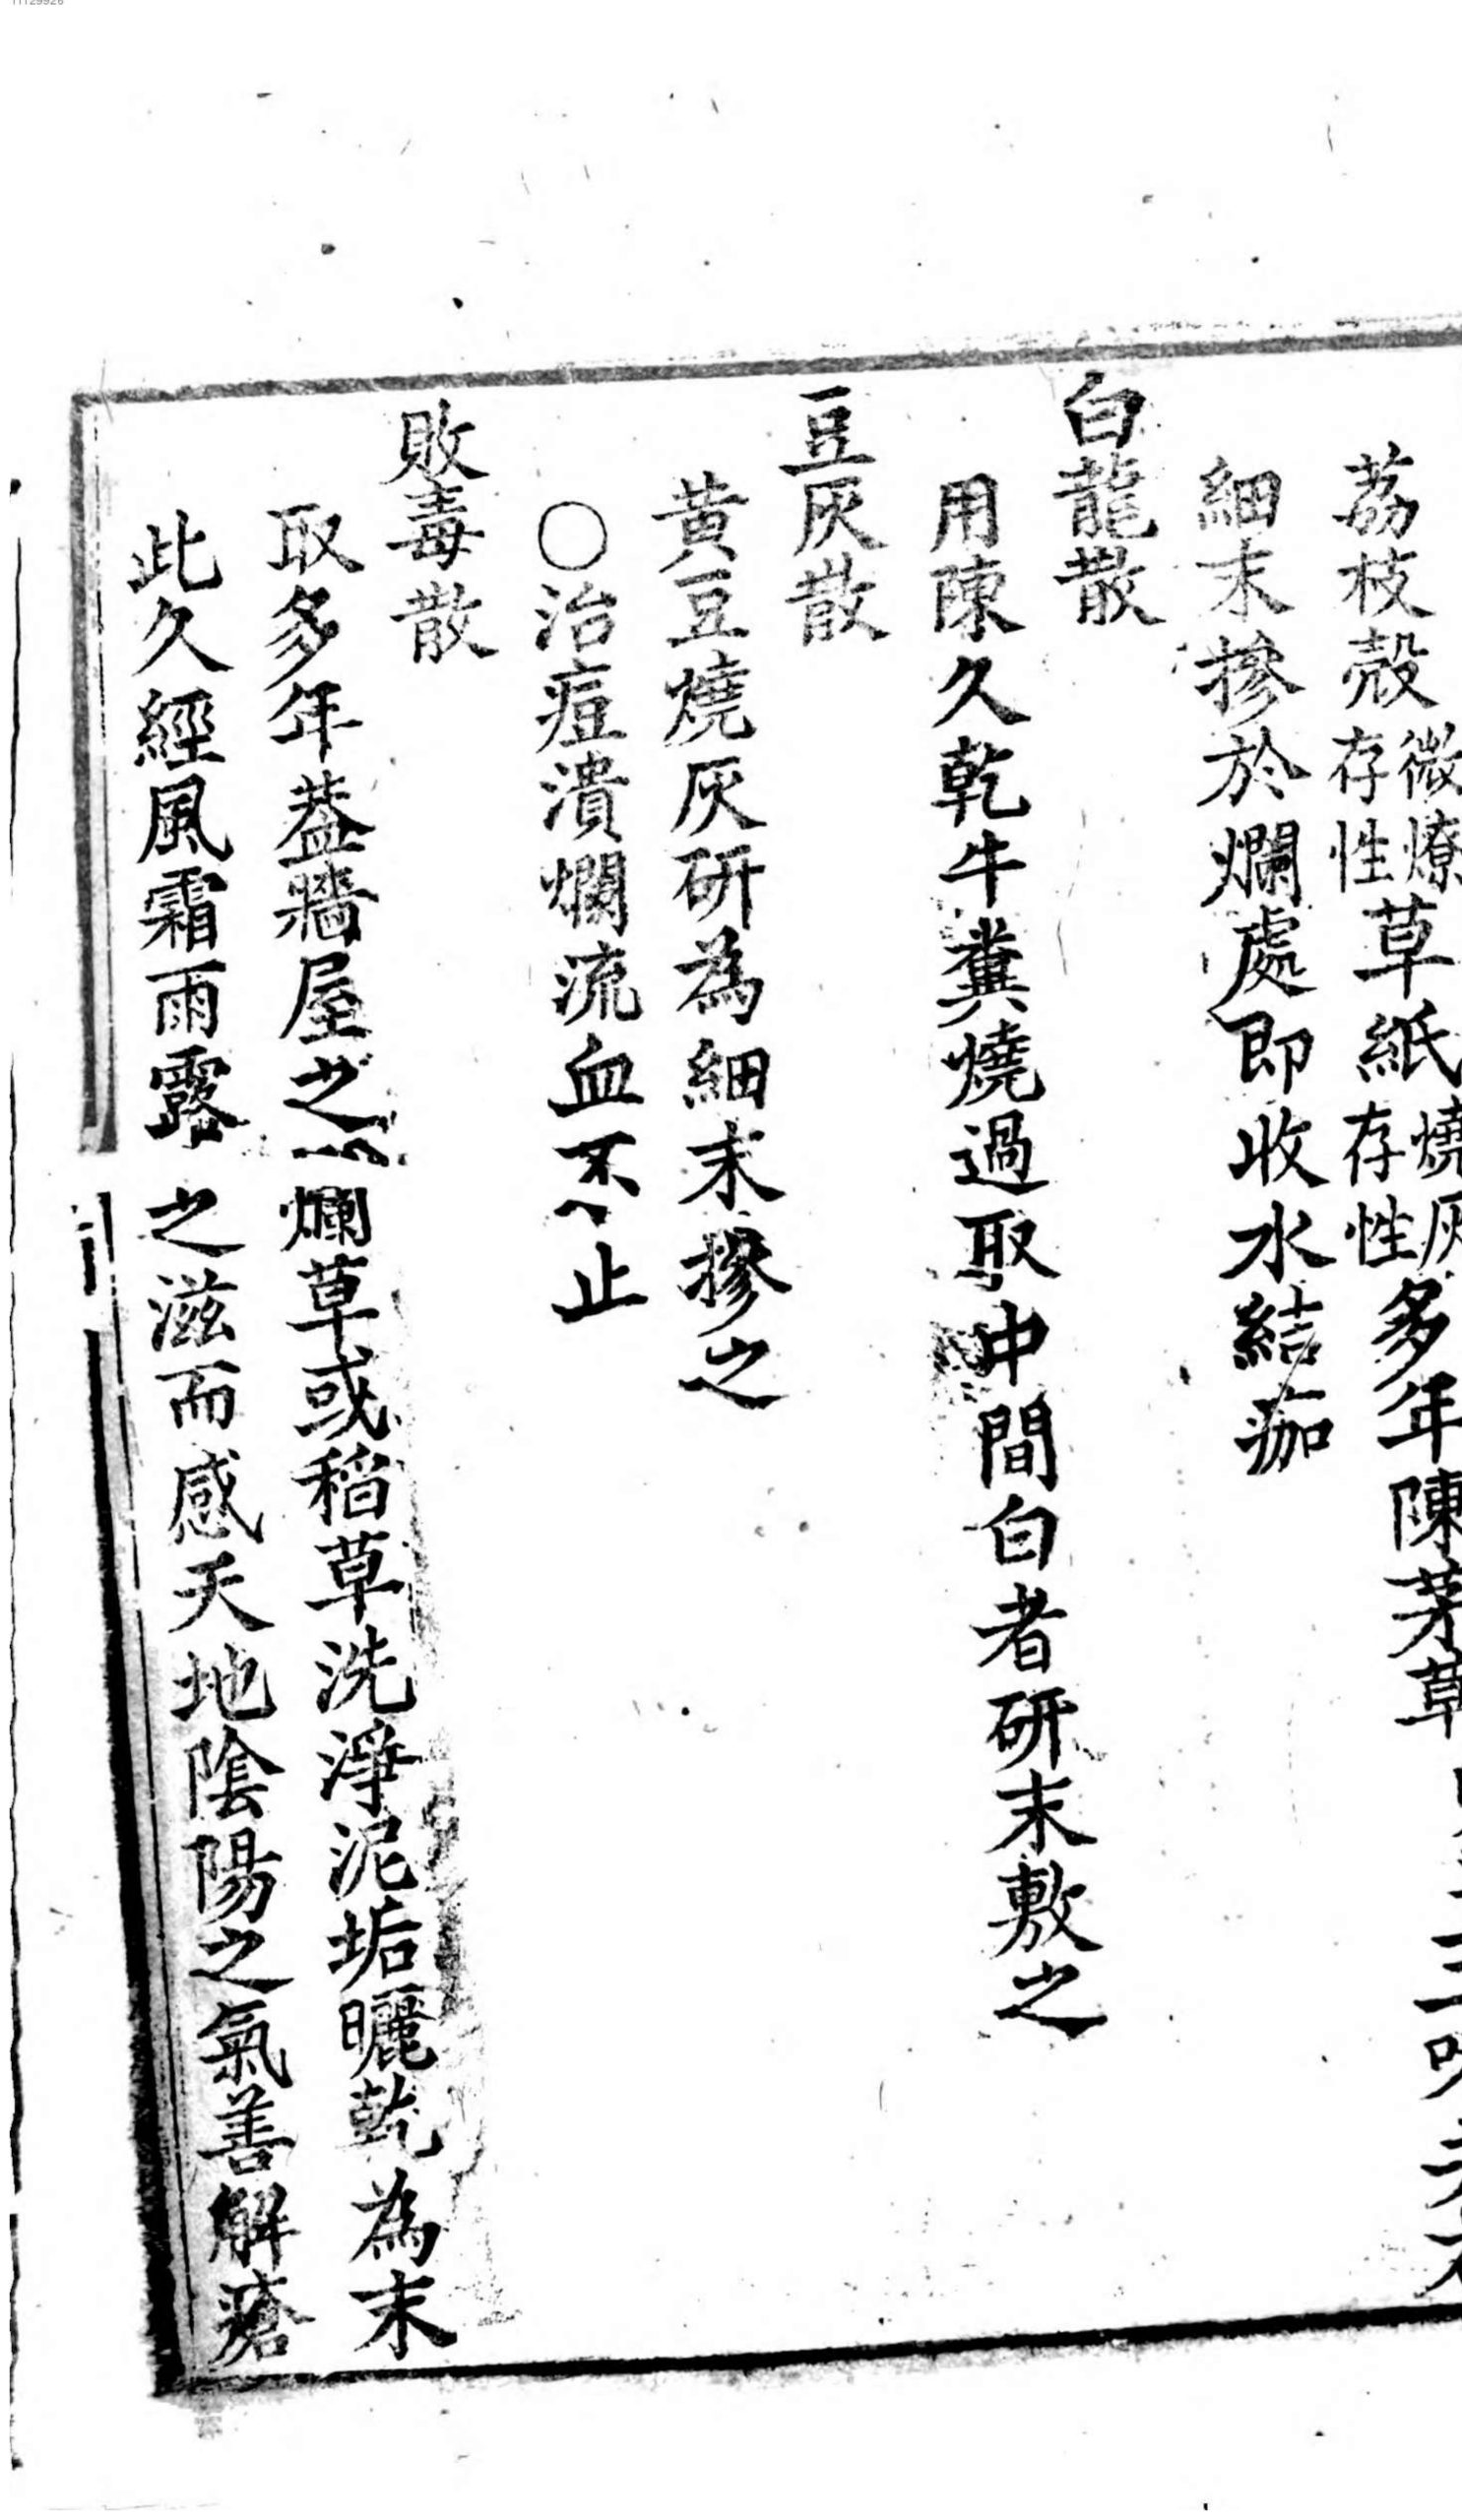 荔枝殼微燎存性草紙燒灰存性多年陳茅草
細末摻於爛處即收水結痂
白龍散
用陳久乾牛糞燒過取中間白者研末敷之
豆灰散
黄豆燒灰研為細末摻之
○治痘潰爛流血不止
敗毒散
取多年葢牆屋之爛草或稻草洗淨泥垢曬乾為末
此久經風霜雨露之滋而感天地陰陽之氣善解瘡